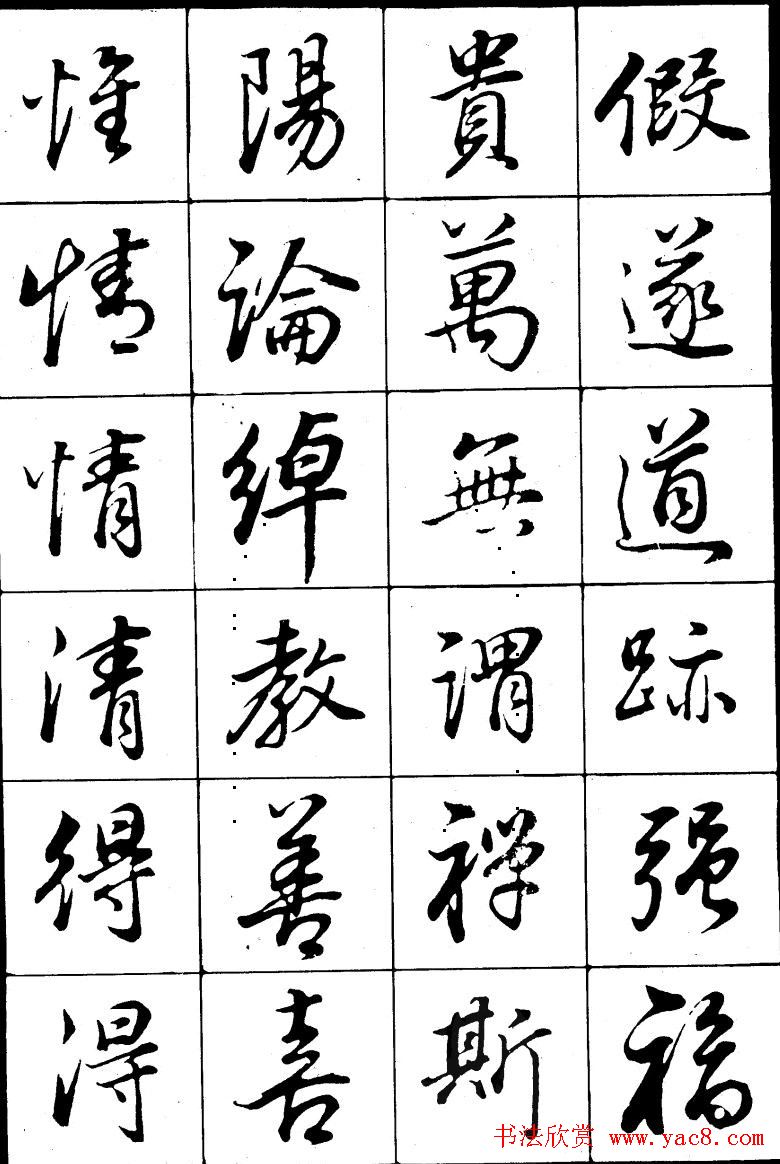 假遂道跡强福
貴萬無謂禪斯
陽論綽教善喜
惟情情清得淂
书法欣赏 www.yac8.com